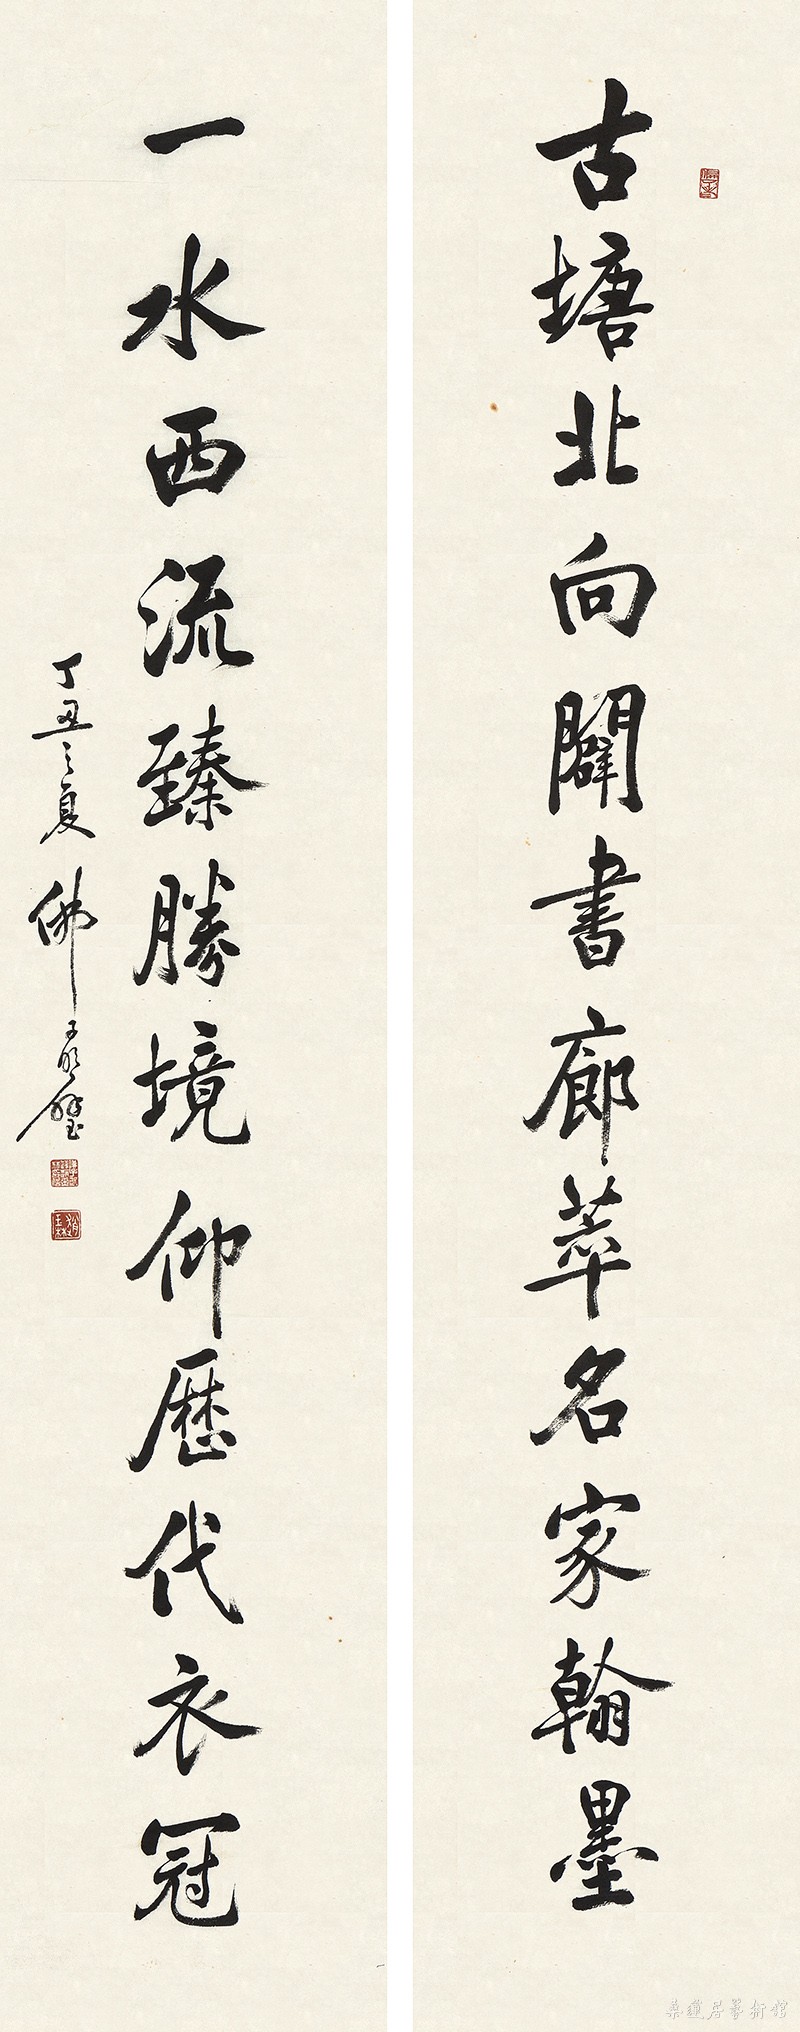 古塘北向闢書廊萃名家翰墨
一水西流臻勝境仰歷代衣冠
丁丑之夏 佛子肖璧
桑蓮居藝術館